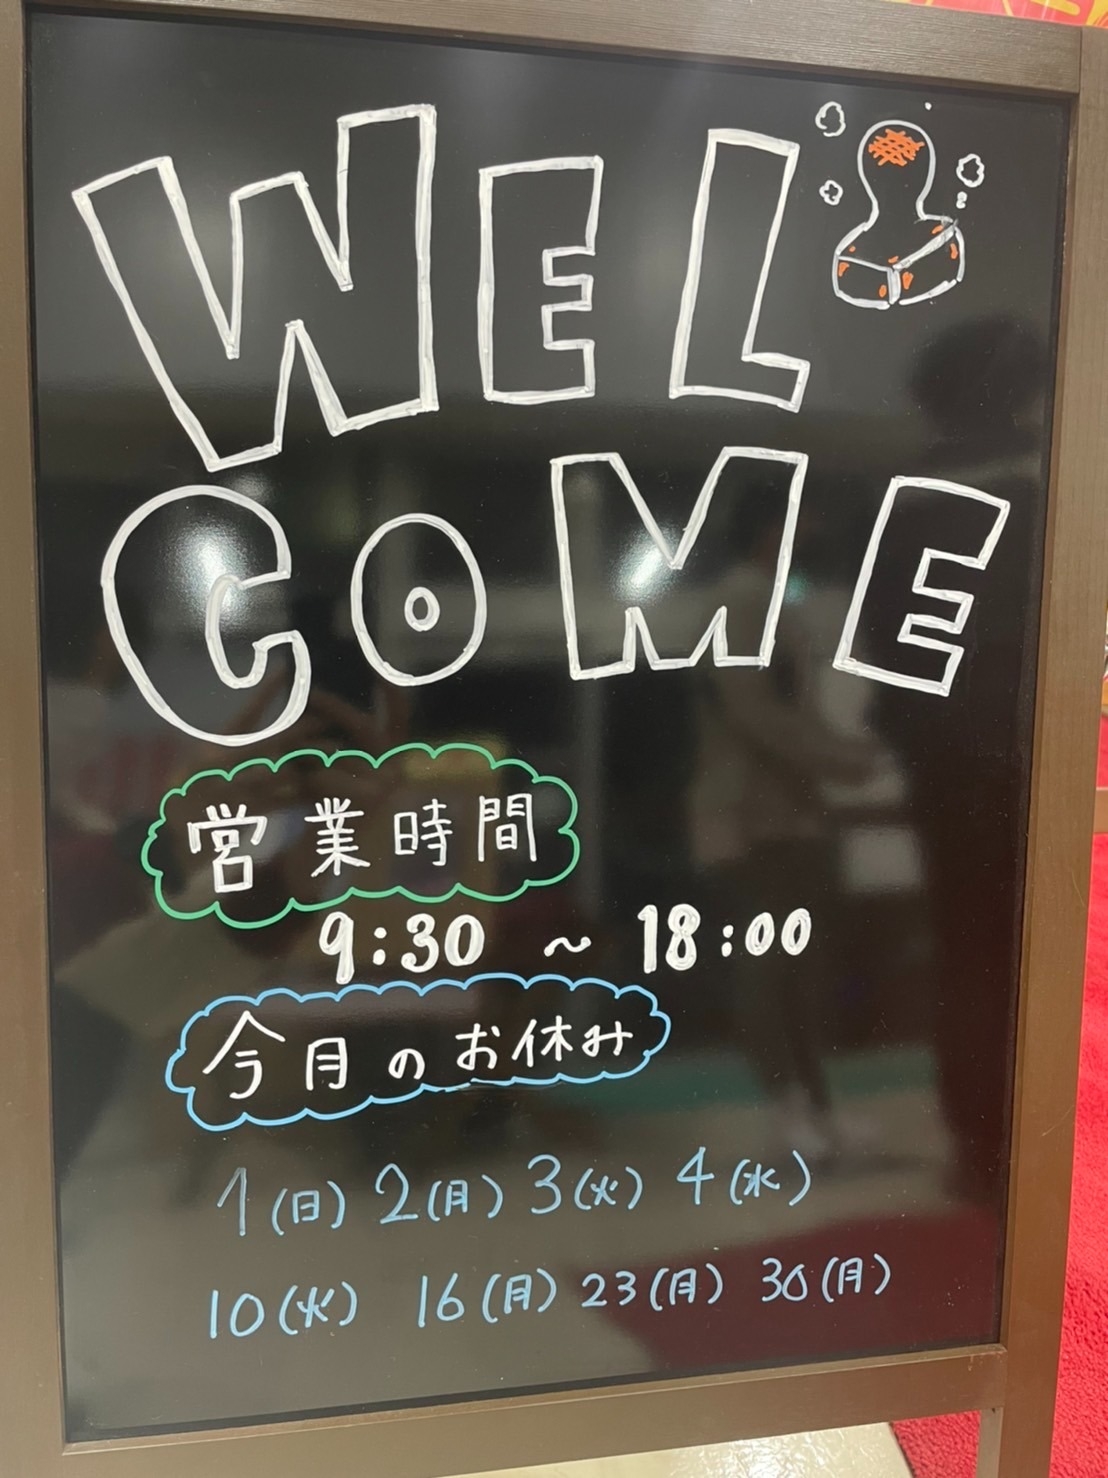 WEL
COME
営業時間
9:30 ~ 18:00
今月のお休み
1(日) 2(月) 3(火) 4(水)
10(火) 16(月) 23(月) 30(月)